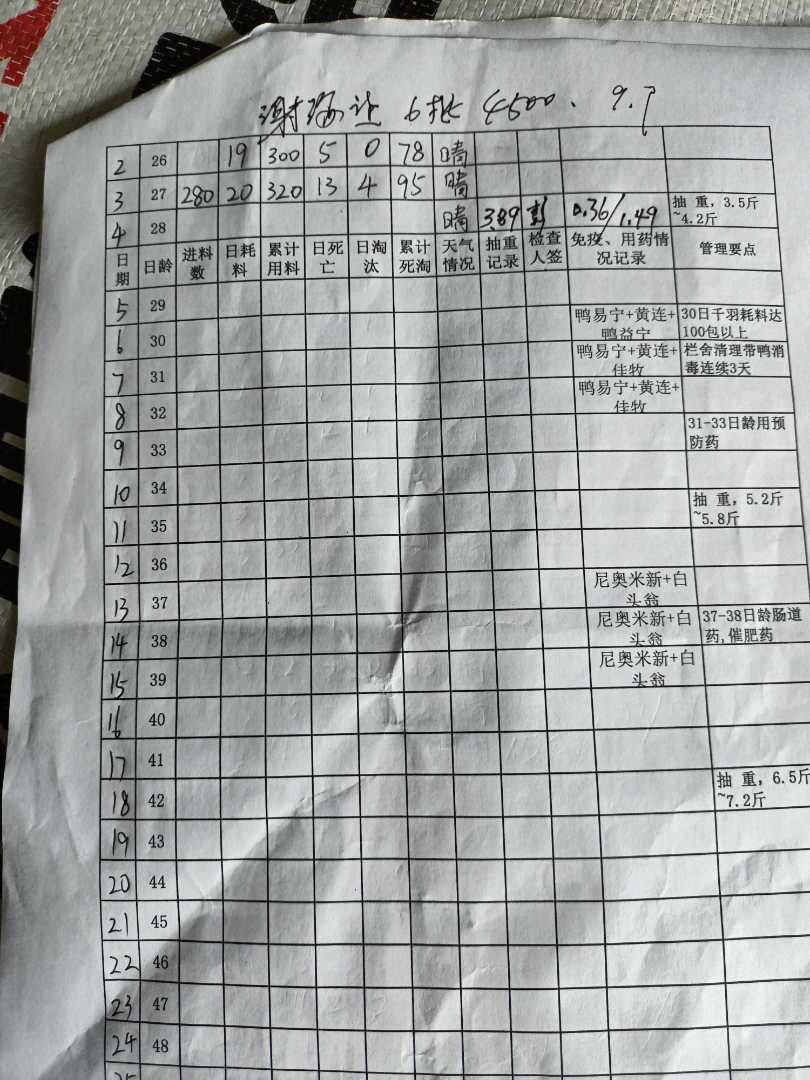 谢 6批 4500、 9.
2 26 19 300 5 0 78 晴
3 27 280 20 320 13 4 95 晴
4 28 晴 3.89 彭 0.36/1.49 抽 重，3.5斤~4.2斤
日期 日龄 进料数 日耗料 累计用料 日死亡 日淘汰 累计死淘 天气情况 抽重记录 检查人签 免疫、用药情况记录 管理要点
5 29
6 30 鸭易宁+黄连+鸭益宁 30日千羽耗料达100包以上
7 31 鸭易宁+黄连+佳牧 栏舍清理带鸭消毒连续3天
8 32 鸭易宁+黄连+佳牧
9 33 31-33日龄用预防药
10 34
11 35 抽 重，5.2斤~5.8斤
12 36
13 37 尼奥米新+白头翁
14 38 尼奥米新+白头翁 37-38日龄肠道药,催肥药
15 39 尼奥米新+白头翁
16 40
17 41
18 42 抽 重，6.5斤~7.2斤
19 43
20 44
21 45
22 46
23 47
24 48